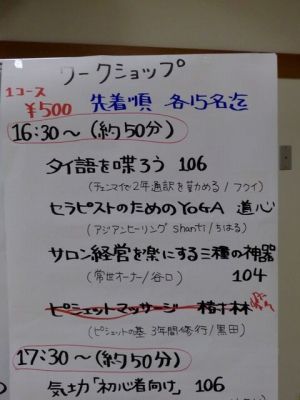 ワークショップ
1コース
¥500 先着順 各15名迄
16:30〜(約50分)
タイ語を喋ろう 106
(チェンマイで2年通訳を勤める/フウイ)
セラピストのためのYOGA 道心
(アジアンヒーリング shanti/ちはる)
サロン経営を楽にする三種の神器
(常世オーナー/谷口) 104
ピシェットマッサージー
(ピシェットの基 3年間修行/黒田)
17:30〜(約50分)
気功「初心者向け」 106